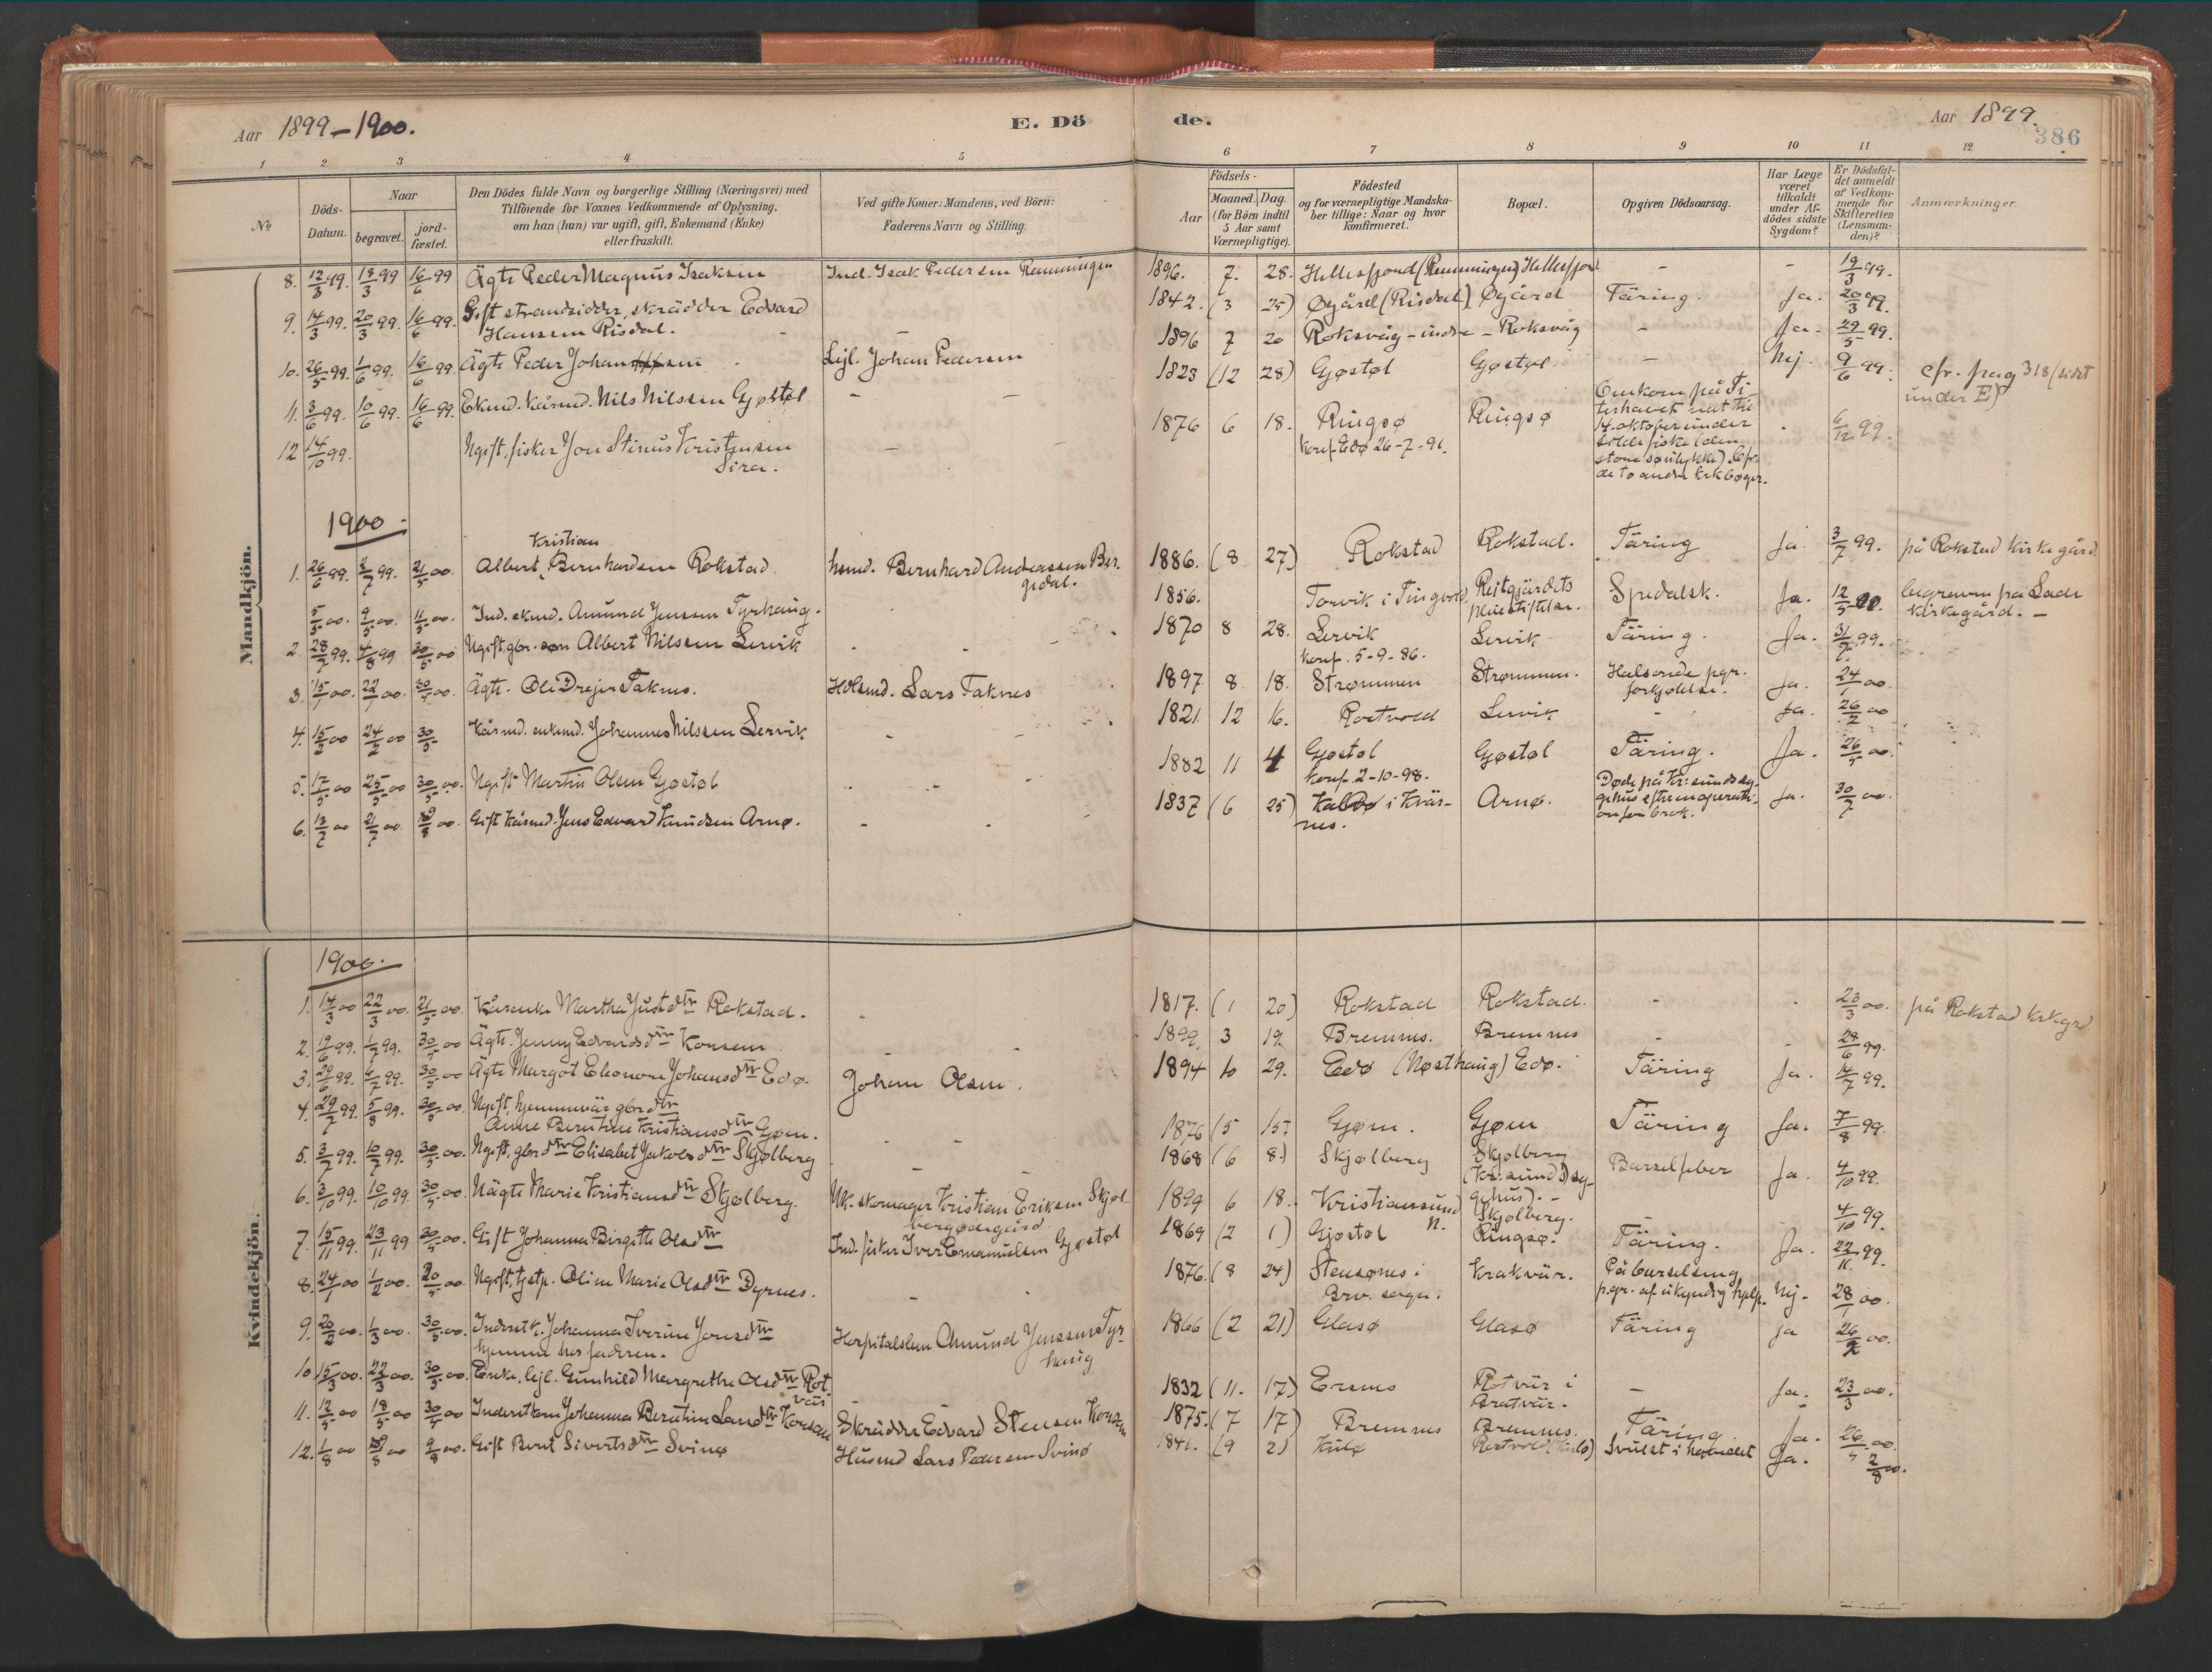 Aar 1899–1900.
E. Dö
de.
Aar 1899.
386
1 2 3 4 5
6 7 8 9 10 11 12
No
Döds-Datum.
Naar
begravet.
jord-fæstet.
Den Dödes fulde Navn og borgerlige Stilling (Næringsvei) med
Tilföiende for Voxnes Vedkommende af Oplysning,
om han (hun) var ugift, gift, Enkemand (Enke)
eller fraskilt.
Ved gifte Koner: Mandens, ved Börn:
Faderens Navn og Stilling.
Födsels-
Aar
Maaned. Dag.
(for Börn indtil
5 Aar samt
Værnepligtige).
Födested
og for værnepligtige Mandska-
ber tillige: Naar og hvor
konfirmeret.
Bopæl.
Opgiven Dödsaarsag.
Har Læge
været
tilkaldt
under Af-
dödes sidste
Sygdom?
Er Dödsfal-
det anmeldt
af Vedkom-
mende for
Skifteretten
(Lensman-
den)?
Anmærkninger.
Mandkjön.
8. 12/3 99. 18/3 99 16/6 99 Ägte Peder Magnus Isaksen Ind. Isak Pedersen Remmingen 1896. 7. 28. - - 19/3 99.
9. 14/3 99. 20/3 99. 16/6 99. Gift strandsidder, skrädder Edvard
Hanssen Risdal. - - 1842. (3 25) Øgård (Risdal) Øgård Täring. Ja. 20/3 99.
10. 26/5 99. 1/6 99. 16/6 99. Ägte Peder Johansen Lejl. Johan Pedersen 1896 7 20 Roksvåg - indre - Roksvåg - Ja. 29/5 99.
11. 3/6 99. 10/6 99. 16/6 99. Ekmd. kårmd. Nils Nilssen Gjøstøl - - 1823 (12 28) Gjøstøl Gjøstøl. - Nej. 9/6 99. cfr. pag 318 (sidst
under E)
12 14/10 99. Ugift, fisker Jon Stinus Kristensen
- 1876 6 18. Ringsø Ringsø
konf. Edø 26-7-91.
Omkom på Ti-
14. oktober under
sildefiske (den
store søulykke). Cfr.
de to andre kirkbøger.
6/12 99.
1900.
1. 26/6 99. 99. 21/5 00. Albert Kristian Bernhardsen Rokstad. husmd. Bernhard Andreassen Ber-
gsdal. 1886. (8 27) Rokstad Rokstad. Täring Ja. 3/7 99. på Rokstad kirkegård.
5/5 00. 9/5 00. 11/5 00. Ind. ekmd. Amund Jensen Tyrhaug. 1856. Torvik i Tingvold. Reitgjärdets
pleiestiftelse. Spedalsk. Ja. 12/5 00. begraven på Lade
kirkegård. -
2. 28/7 99. 4/8 99 30/5 00 Ugift, gbr. søn Albert Nilssen Lervik - - 1870 8 28. Lervik Lervik Täring. Ja. 31/7 99.
konf. 5-9-86.
3. 15/1 00. 22/1 00. 30/5 00. Ägte. Ole Drejer Taknes. Holsmd. Lars Taknes 1897 8 18. Strømmen Strømmen. Halsonde pgr.
forkjølelse. Ja. 24/1 00.
4. 15/2 00 24/2 00 30/5 Kårmd. enkmd. Johannes Nilssen Lervik - - 1821 12 16. Rostvold Lervik - Ja. 26/2 00
5. 17/5 00 25/5 00 30/5 00. Ugift Martin Olsen Gjøstøl - - 1882 11 4 Gjøstøl Gjøstøl Täring. Ja. 26/5 00.
konf. 2-10-98.
6. 13/7 00 21/7 00. 00. Gift kårmd. Jens Edvard Knudsen Arnø. - - 1837 (6 25) i Kvär-
nes. Arnø. Døde på Kr:sunds sy-
gehus efter en operati-
on for brok. Ja. 30/7 00.
Kvindekjön.
1900.
1. 14/3 00 22/3 00. 21/5 00. Kårenke Martha Justdtr Rokstad. - 1817. (1 20) Rokstad Rokstad. - - 23/3 00. på Rokstad kirkegrd.
2. 19/6 99. 1/7 99. 30/5 00 Ägte. Jenny Edvardsdtr Korsem - - 1899. 3 19. Bremnes. Bremnes - - 99.
3. 29/6 99. 6/7 99. 30/5 00 Ägte Margot Eleonore Johansdtr Edø. Johan Olsen. 1894 10 29. Edø (Nøsthaug) Edø. Täring Ja. 14/7 99.
4. 29/7 99. 5/8 99. 30/5 00. Ugift, hjemmevär. gbr dtr
Anne Berntine Kristiansdtr Gjøm. - - 1876 (5 15) Gjøm. Gjøm Täring Ja. 7/8 99.
5. 3/7 99. 10/7 99. 30/5 00. Ugift, gbr dtr Elisabet Jakobsdtr Skjølberg - - 1868 (6 8.) Skjølberg Skjølberg
(Kr:sunds sy-
gehus). - Barselfeber Ja. 4/10 99.
6. 3/10 99. 10/10 99. 30/5 00. Uägte Marie Kristiansdtr Skjølberg. Uk. skomager Kristian Eriksen Skjøl-
bergødegård. 1899 6 18. Kristiansund
N. Skjølberg. - 4/10 99.
7. 15/11 99. 23/11 99 30/5 00. Gift Johanna Birgitte Olsdtr Ind. fisker Iver Emanuelsen Gjøstøl 1869 (2 1) Gjøstøl Ringsø. Täring. Ja. 22/11 99.
8. 24/1 00 1/2 00. 20/5 00. Ugift, tjstp. Oline Marie Olsdtr Dyrnes. - - 1876. (8 24) Stensønes i
Brv. sogn. Krakvär. På barselseng
p.gr. af ukyndig hjelp. Nej. 28/1 00.
9. 20/2 00. 1/3 00. 30/5 00. Inderstk. Johanna Iverine Jonsdtr
hjemme hos faderen. Hospitalslem Amund Jenssen Tyr-
haug 1866 (2 21) Glasø Glasø Täring ja 26/2 00.
10 15/3 00. 22/3 00. 30/5 00. Enke, lejl. Gunhild Margrethe Olsdtr Rot-
vär - 1832 (11. 17) Rotvär i
Bratvär. - Ja. 23/3 00.
11. 12/5 00 18/5 00 30/5 00 Inderstkone Johanna Berntine Larsdtr Korsem Skrädder Edvard Stensen Korsem 1875. (7 17) Bremnes Bremnes. Täring. Ja. 26/5 00.
12. 1/8 00 00 9/8 00. Gift Berit Sivertsdtr Svinø Husmd Lars Pedersen Svinø 1841. (9 2) Kulø Rostvold (Kulø) Svulst i Ja. 2/8 00.